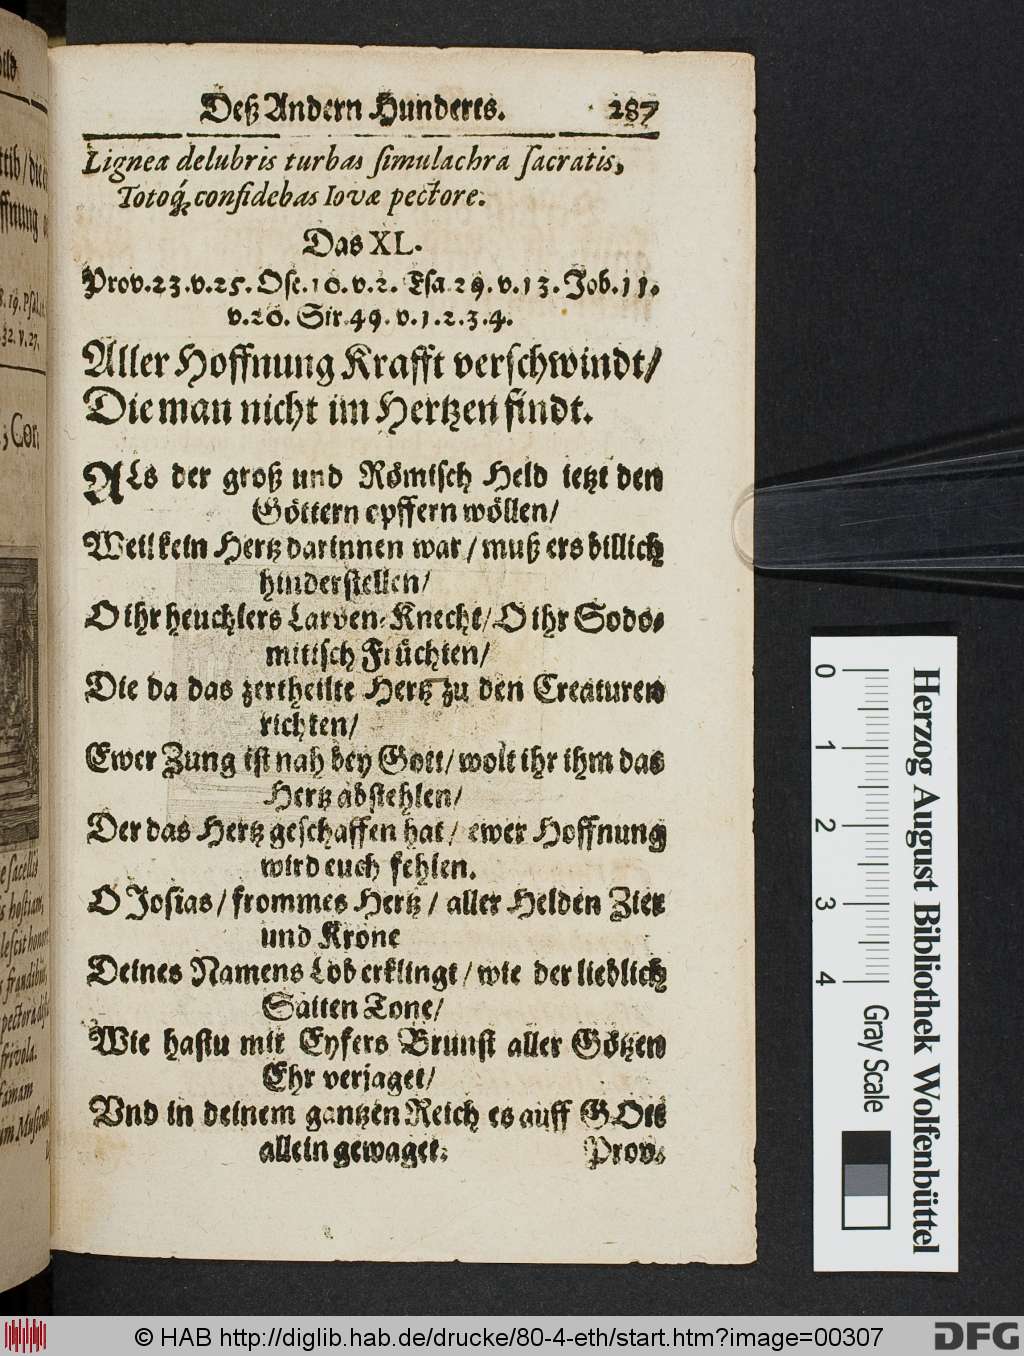 Deß Andern Hunderts. 287
Lignea delubris turbas simulachra sacratis,
Totoq́; confidebas Iovæ pectore.
Das XL.
Prov. 23. v. 25. Ose. 10. v. 2. Esa. 29. v. 13. Job. 11.
v. 20. Sir. 49. v. 1. 2. 3. 4.
Aller Hoffnung Krafft verschwindt/
Die man nicht im Hertzen findt.
ALs der groß und Römisch Held ietzt den
Göttern opffern wöllen/
Weil kein Hertz darinnen war/ muß ers billich
hinderstellen/
O ihr heuchlers Larven-Knecht/ O ihr Sodo-
mitisch Früchten/
Die da das zertheilte Hertz zu den Creaturen
richten/
Ewer Zung ist nah bey Gott/ wolt ihr ihm das
Hertz abstehlen/
Der das Hertz geschaffen hat/ ewer Hoffnung
wird euch fehlen.
O Josias/ frommes Hertz/ aller Helden Zier
und Krone
Deines Namens Lob erklingt/ wie der lieblich
Saiten Tone/
Wie hastu mit Eyfers Brunst aller Götzen
Ehr verjaget/
Vnd in deinem gantzen Reich es auff GOtt
allein gewaget.
Prov.
ild
ttib/ die
ffnung
8. 19. Psal.
32. v. 27.
3 Cor.
e sacellis
is hostiam,
lescit honor
fraudibus,
pectora
frivola.
famam
um
0 1 2 3 4
Gray Scale
Herzog August Bibliothek Wolfenbüttel
© HAB http://diglib.hab.de/drucke/80-4-eth/start.htm?image=00307
DFG